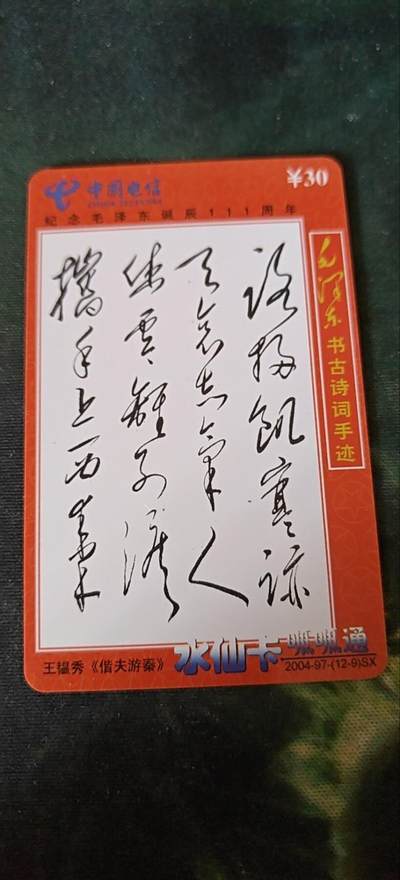 中国电信
CHINA TELECOM
¥30
纪念毛泽东诞辰111周年
毛泽东书古诗词手迹
路掃飢寒跡
天哀志氣人
休零離别淚
攜手入西秦
王韫秀《偕夫游秦》
水仙卡 呱呱通
2004-97-(12-9)SX